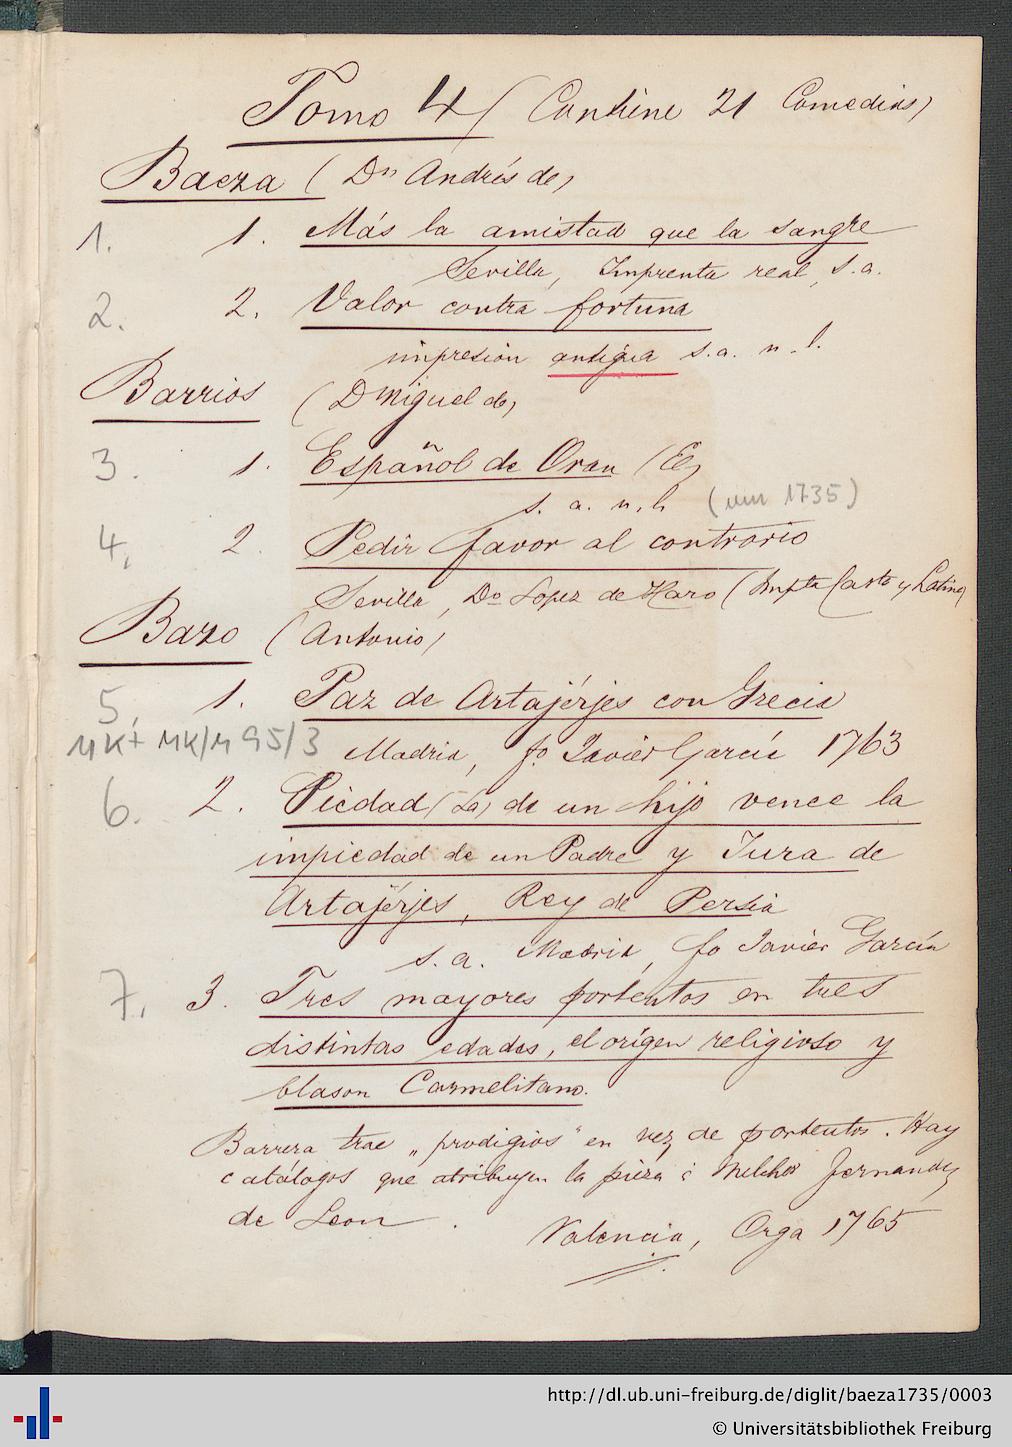 Tomo 4 (Contiene 21 Comedias)
Baeza (Dn Andrés de)
1. 1. Más la amistad que la sangre
Sevilla, Imprenta real, s.a.
2. 2. Valor contra fortuna
impresión antigua s.a. n.l.
Barrios (Dn Miguel de)
3. 1. Español de Oran (El)
s. a. n. l. (um 1735)
4. 2. Pedir favor al contrario
Sevilla, Do Lopez de Haro (Impta Casta y Latina)
Bazo (Antonio)
5. 1. Paz de Artajérjes con Grecia
MK+ MK/M 95/3 Madrid, fo Javier García 1763
6. 2. Piedad (La) de un hijo vence la
impiedad de un Padre y Jura de
Artajérjes, Rey de Persia
s. a. Madrid, fo Javier García
7. 3. Tres mayores portentos en tres
distintas edades, el orígen religioso y
blason Carmelitano.
Barrera trae „prodigios" en vez de portentos. Hay
catálogos que atribuyen la pieza á Melchor Fernandez
de Leon.
Valencia, Orga 1765
http://dl.ub.uni-freiburg.de/diglit/baeza1735/0003
© Universitätsbibliothek Freiburg